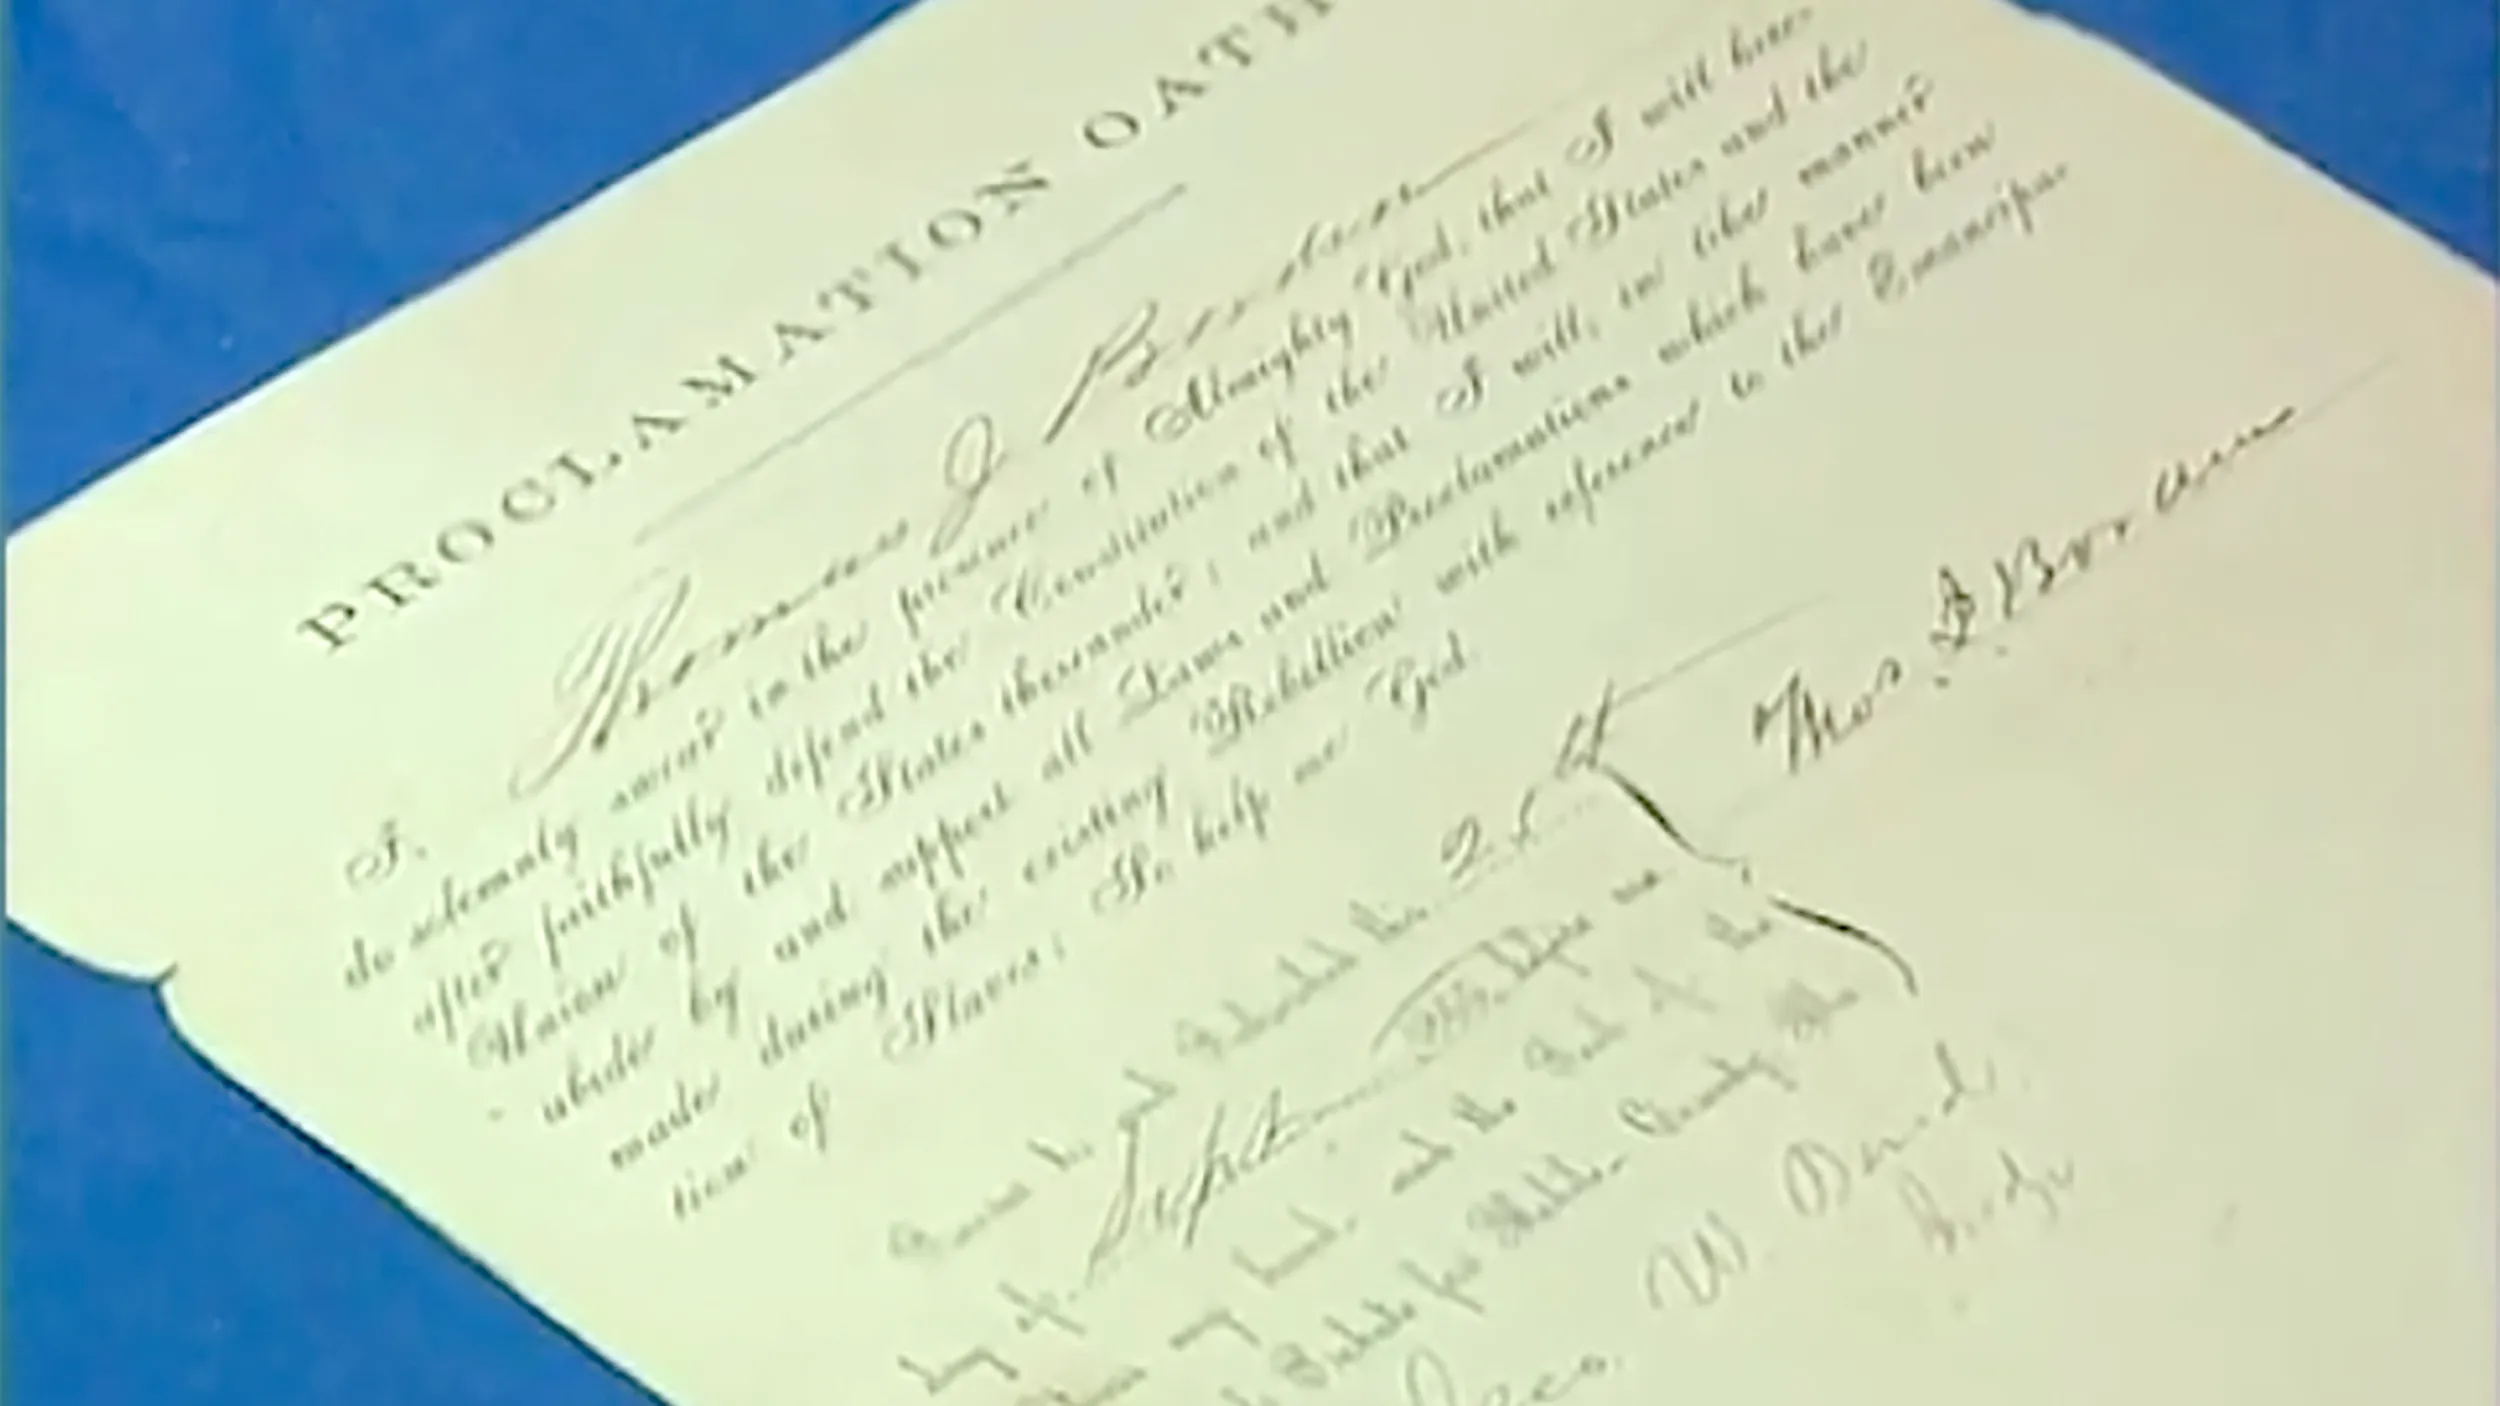 PROCLAMATION OATH
I, Thomas J Brennan
do solemnly swear in the presence of Almighty God, that I will here-
after faithfully defend the Constitution of the United States and the
Union of the States thereunder; and that I will, in like manner
abide by and support all Laws and Proclamations which have been
made during the existing Rebellion with reference to the Emancipa-
tion of Slaves; So help me God.
Thos. J. Brennan
Sworn to and Subscribed this 25th
day of Sept. before me
my hand and the Seal of the
Probate for Mobile County
W. Bond
Judge